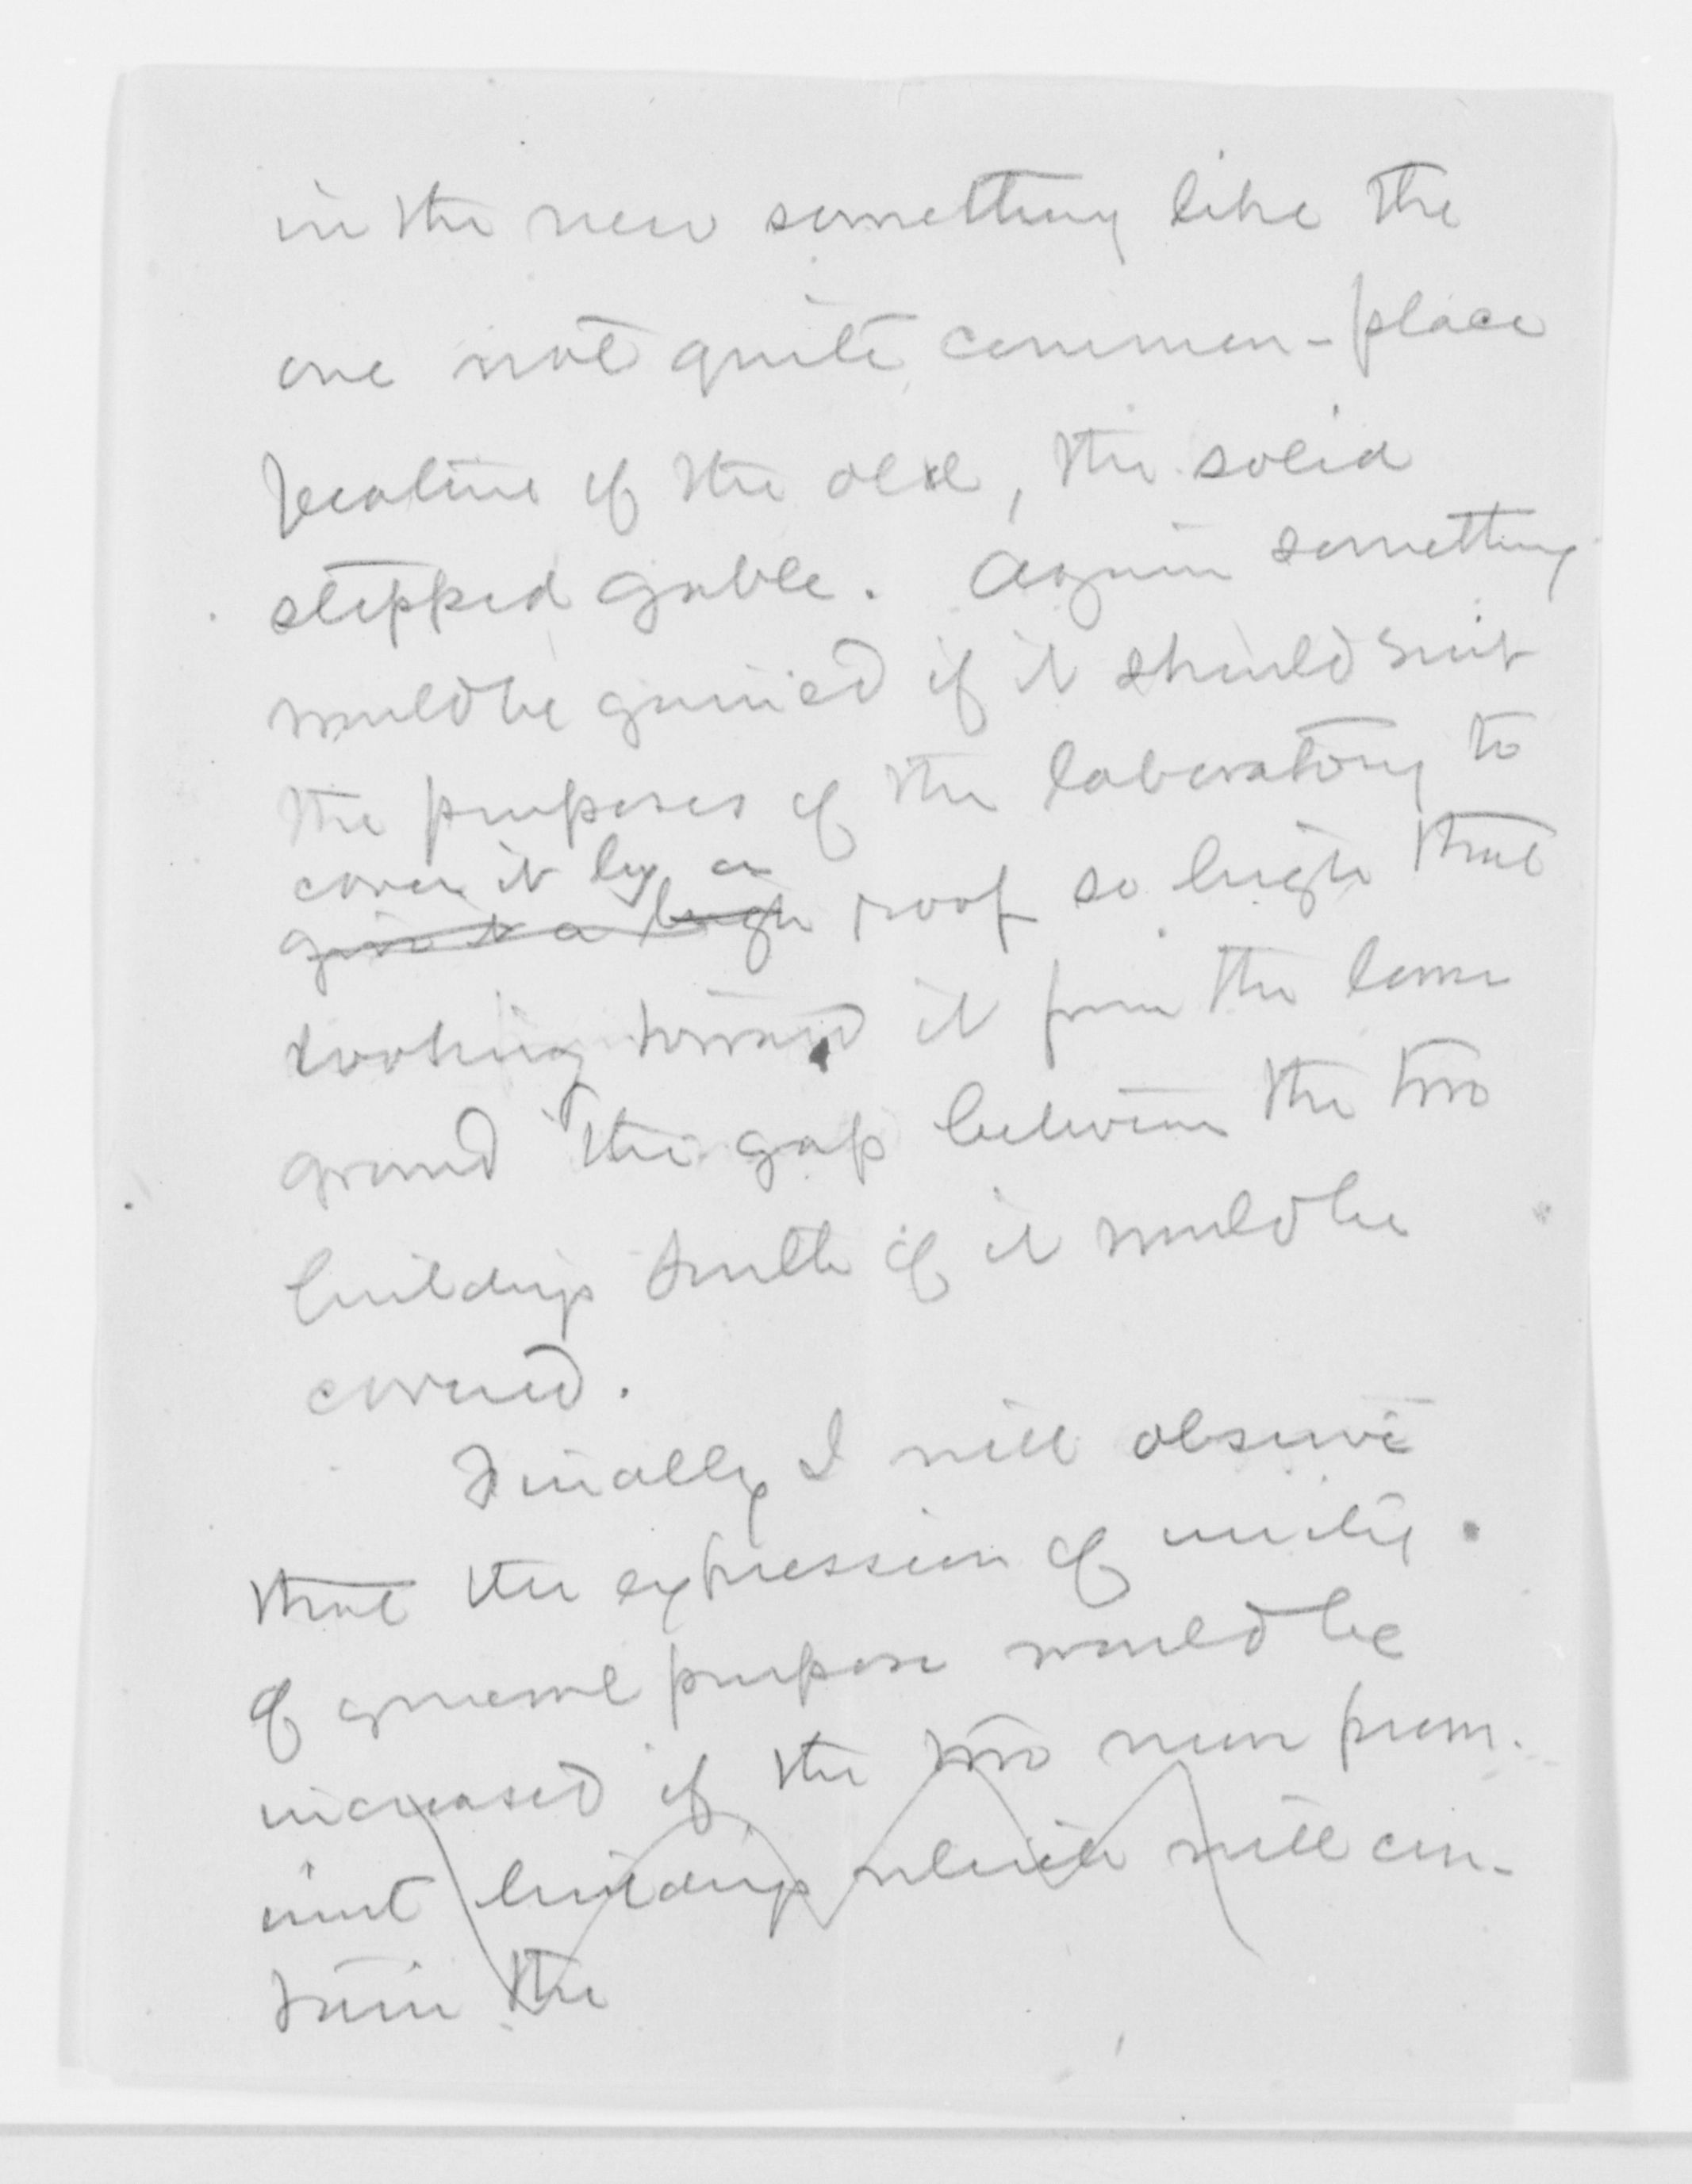 in the new something like the
one not quite common-place
feature of the old, the solid
stepped gable. Again something
would be gained if it should suit
the purposes of the laboratory to
cover it by a
give it a high roof so high that
looking toward it from the lower
ground the gap between the two
buildings south of it would be
covered.
Finally I will observe
that the expression of unity
of general purpose would be
increased if the two new prom-
inent buildings which will con-
tain the